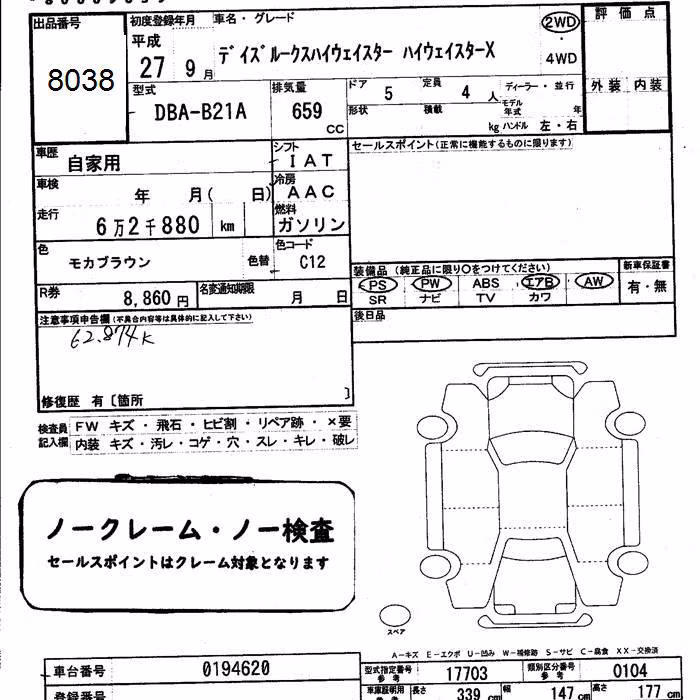 出品番号
8038
初度登録年月 車名・グレード
平成
27 9月
デイズルークスハイウェイスター ハイウェイスターX
2WD
・
4WD
評価点
外装 内装
型式
DBA-B21A
排気量
659
CC
ドア 5 定員 4 人
形状 積載 kg
ディーラー・並行
モデル年式 年
ハンドル 左・右
車歴
自家用
シフト
IAT
セールスポイント(正常に機能するものに限ります)
車検
年 月( 日)
冷房
AAC
走行
6万2千880 km
燃料
ガソリン
色
モカブラウン 色替
色コード
C12
装備品 (純正品に限り○をつけてください)
PS PW ABS エアB AW
SR ナビ TV カワ
新車保証書
有・無
R券
8,860円
名変通知期限
月 日
後日品
注意事項申告欄(不具合内容等は具体的に記入して下さい)
62.874K
修復歴 有〔箇所 〕
検査員記入欄
FW キズ・飛石・ヒビ割・リペア跡・×要
内装 キズ・汚レ・コゲ・穴・スレ・キレ・破レ
ノークレーム・ノー検査
セールスポイントはクレーム対象となります
スペア
A-キズ E-エクボ U-凹み W-補修跡 S-サビ C-腐食 XX-交換済
車台番号 0194620
型式指定番号 参考 17703 類別区分番号 参考 0104
登録番号
車庫証明用 参考 長さ 339 cm 幅 147 cm 高さ 177 cm